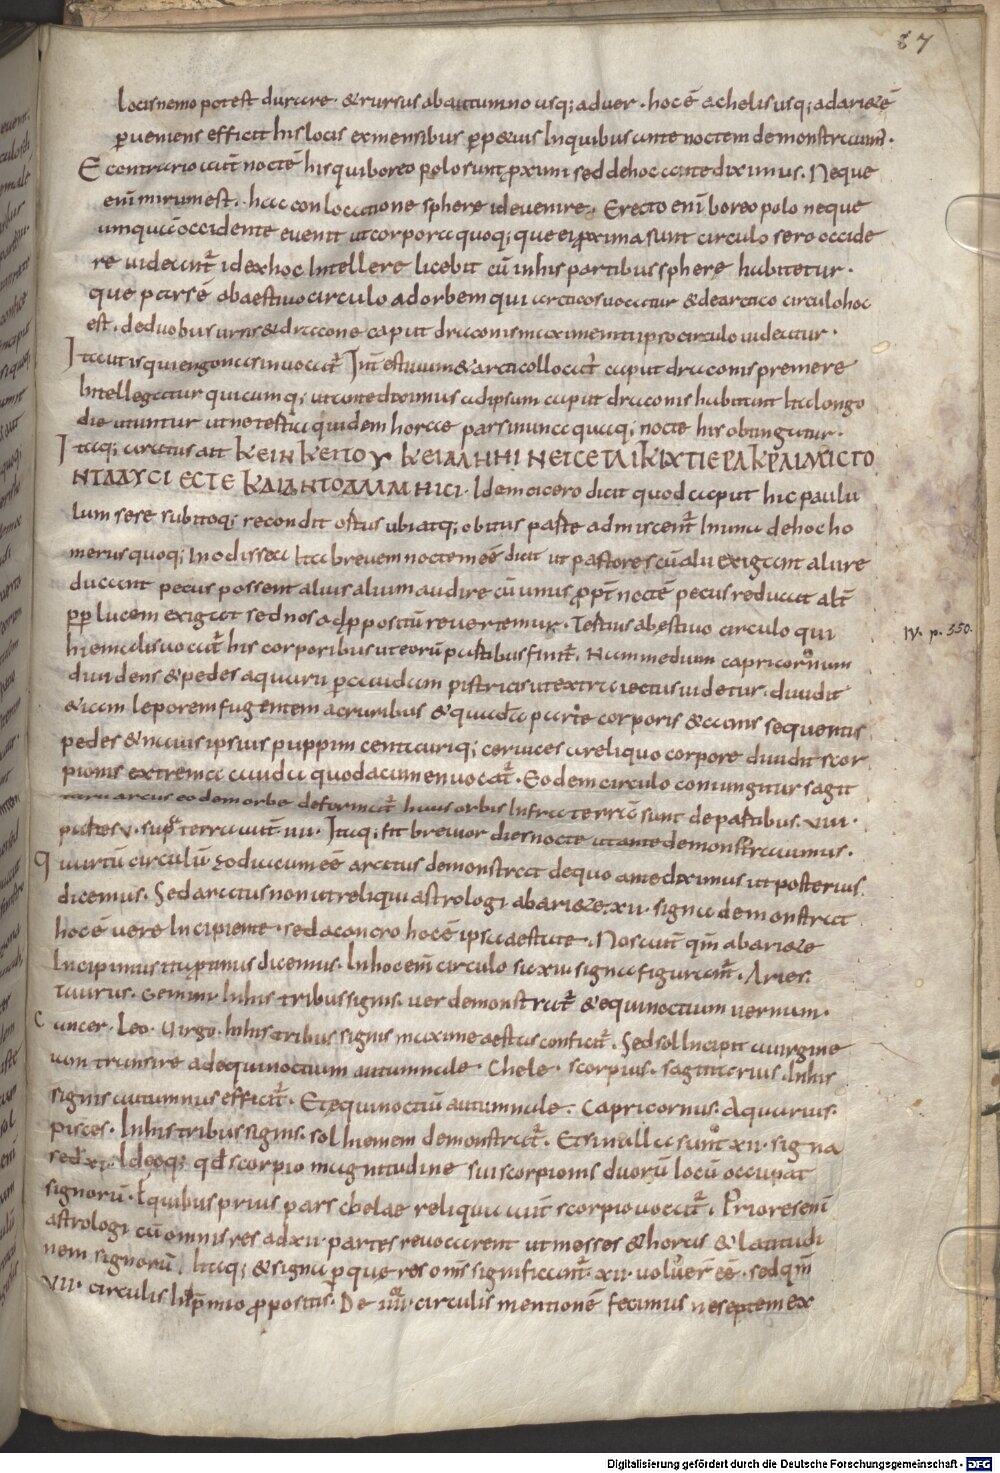 87
locis nemo potest durare · & rursus ab autumno usq; ad uer · hoc ē a chelis usq; ad ariete
perueniens efficit his locis ex mensibus ppetuis In quibus ante noctem demonstrauim ·
E contrario aut noctē his qui boreo polo sunt pximi sed de hoc ante diximus. Neque
eni mirum est · hac conlocatione sphere id euenire · Erecto eni boreo polo neque
umquā occidente euenit ut corpora quoq; que ei pxima sunt circulo sero occide
re uideant id ex hoc Intellere licebit cū in his partibus sphere habitetur ·
que pars ē ab aestiuo circulo ad orbem qui arcticos uocatur & de arctico circulo hoc
est · de duobus ursis & dracone caput draconis maxime niti ipso circulo uideatur ·
Ita ut is qui engonasin uocat Int estiuum & arcti collocat caput draconis premere
Intellegatur quicumq; ut ante diximus ad ipsum caput draconis habitant Ita longo
die utuntur ut ne tertia quidem horae pars in unaquaq; nocte his obtingatur ·
Itaq; aratus ait ΚΕΙΝ ΚΕΙΤΟΥ ΚΕΙΑΛΗΗΙ ΝΕΙCΕΤΑΙ
ΝΤΑΛΥCΙ ΕCΤΕ ΚΑΙΔΝΤΟΛΑΙΑ ΗΙCΙ · Idem cicero dicit quod caput hic paulu
lum sese subitoq; recondit ortus ubi atq; obitus parte admiscent In una de hoc ho
merus quoq; In odissea Ita breuem noctem eē dicit ut pastores cū alii exigant alii re
ducant pecus possent alius alium audire cū unus ppt noctē pecus reducat alt
pp lucem exigat sed nos ad ppositū reuertemur · Tertius ab estiuo circulo qui
IV. p. 350.
hiemalis uocat his corporibus ut eorū partibus finit. Nam medium capricornum
diuidens & pedes aquarii p caudam pistricis ut extra iectus uidetur · diuidit
& iam leporem fugentem a cruribus & quadā parte corporis & canis sequentis
pedes & nauis ipsius puppim centauriq; ceruices a reliquo corpore diuidit scor
pionis extrema cauda quod acumen uocat · Eodem circulo coniungitur sagit
tarii arcus eodem orbe deformat huius orbis Infra terrā sunt de partibus · VIII ·
partes V · sup terra aut III · Itaq; fit breuior dies nocte ut ante demonstrauimus ·
Quartū circulū zodiacum eē aratus demonstrat de quo ante diximus ut posterius
dicemus · Sed aratus non ut reliqui astrologi ab ariete · XII · signa demonstrat
hoc ē uere Incipiente · sed a cancro hoc ē ipsa aestate · Nos aut qm ab ariete
Incipimus ita ptinus dicemus · In hoc eni circulo sic XII signa figurant · Aries ·
taurus · Gemini · In his tribus signis · uer demonstrat & equinoctium uernum ·
Cancer · Leo · Virgo · In his tribus signis maxime aestas conficit · Sed sol Incipit a uirgine
iam transire ad equinoctium autumnale · Chele · scorpius · sagittarius · In his
signis autumnus efficit · Et equinoctiū autumnale · Capricornus · Aquarius ·
pisces · In his tribus signis · sol hiemem demonstrat · Et si nulla sunt XII · signa
sed XI · Ideoq; qd scorpio magnitudine sui scorpionis duorū locū occupat
signorū · E quibus prius pars chelae reliqua aut scorpio uocat · Priores eni
astrologi cū omnis res ad XII · partes reuocarent ut menses & horas & latitudi
nem signorū · Itaq; & signa p que res omis significant · XII · uoluer eē · sed qm
XII · circulis In pmio ppositis · De IIII · circulis mentionē fecimus ne septem ex
Digitalisierung gefördert durch die Deutsche Forschungsgemeinschaft - DFG